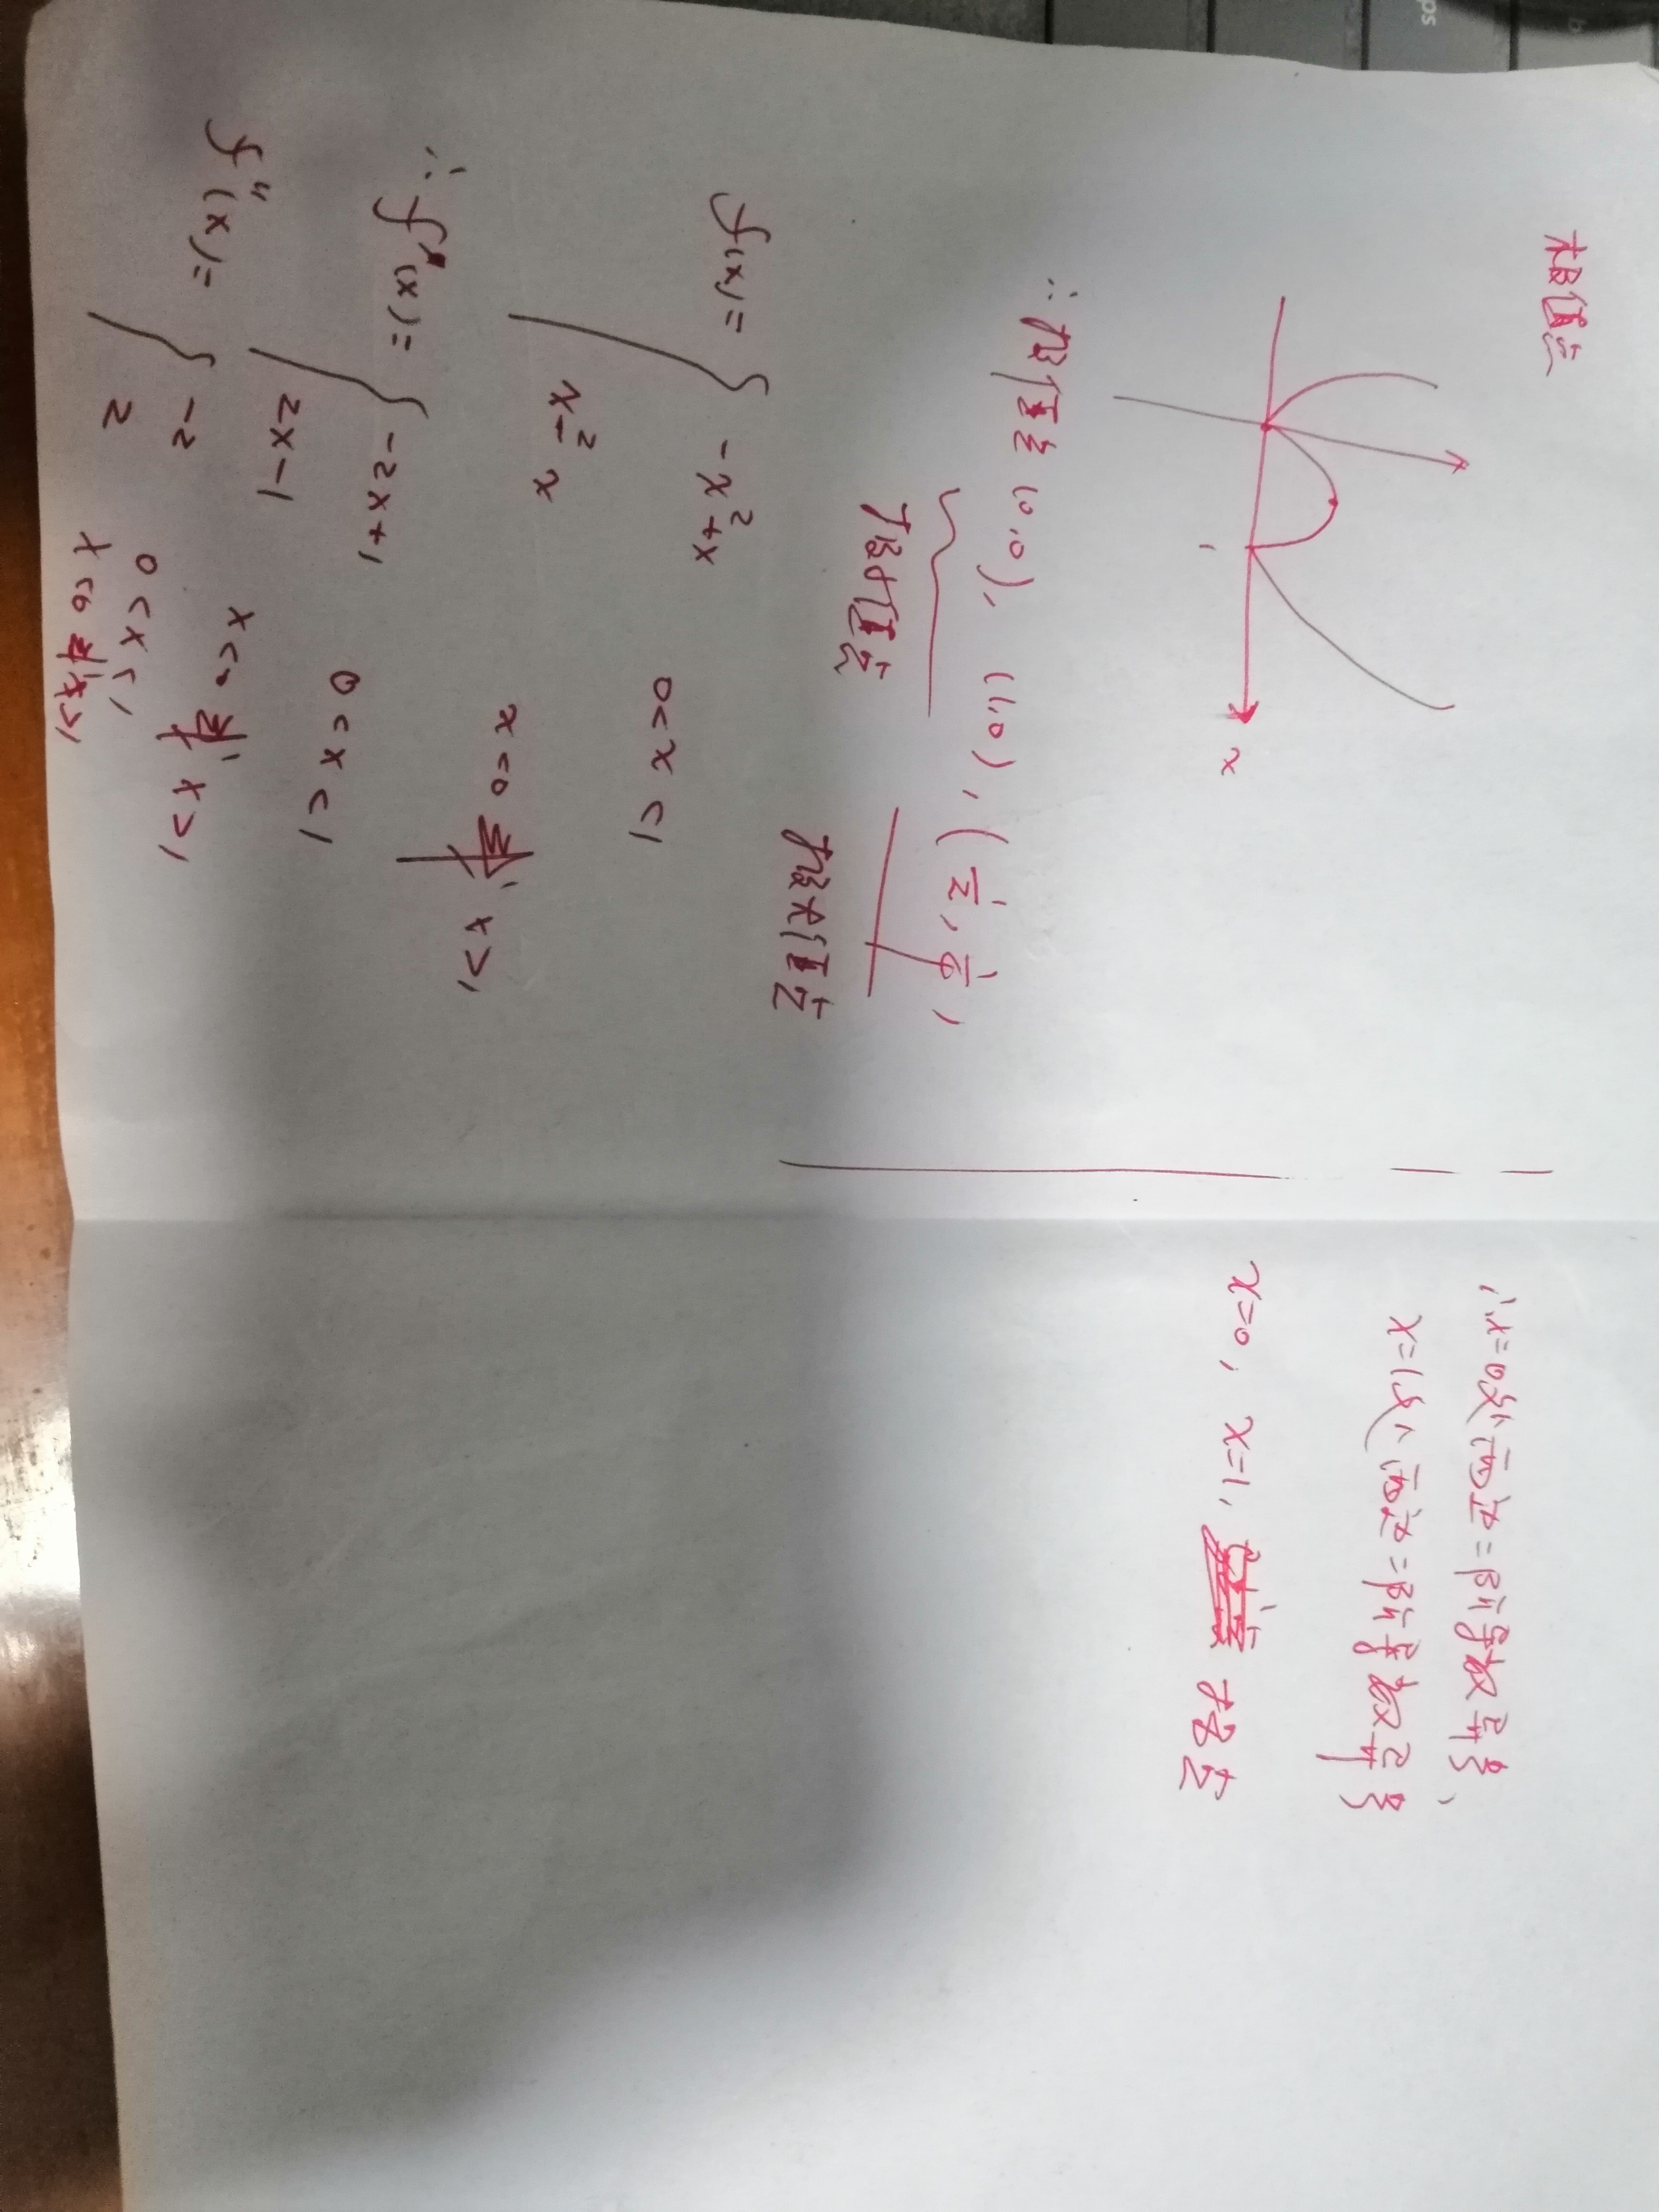 极值点
x
1
∴极值点 (0,0), (1,0), (1/2, 1/4)
极小值点
极大值点
f(x)= { -x²+x 0<x<1
x²-x x<0 或 x>1
∴ f'(x)= { -2x+1 0<x<1
2x-1 x<0 或 x>1
f''(x)= { -2 0<x<1
2 x<0 或 x>1
∵ x=0处, 两边二阶导数异号,
x=1处, 两边二阶导数异号
x=0, x=1, 拐点